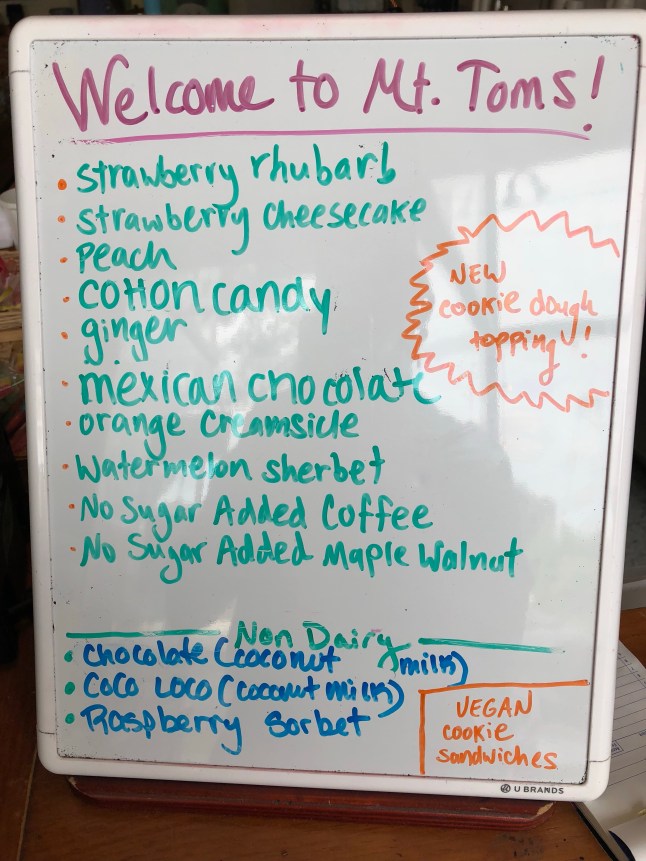 Welcome to Mt. Toms!
• strawberry rhubarb
• strawberry cheesecake
• peach
• cotton candy
• ginger
• mexican chocolate
• orange creamsicle
• watermelon sherbet
• No Sugar Added Coffee
• No Sugar Added Maple Walnut
NEW
cookie dough
topping!
Non Dairy
• chocolate (coconut milk)
• Coco Loco (coconut milk)
• Raspberry Sorbet
VEGAN
cookie
sandwiches
U BRANDS